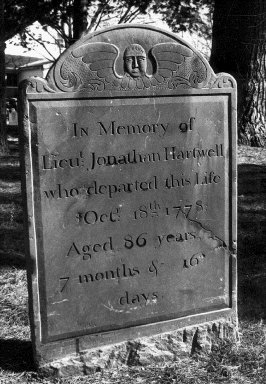 In Memory of
Lieut. Jonathan Hartwell
who departed this Life
Octr. 18th 1778.
Aged 86 years
7 months & 16
days